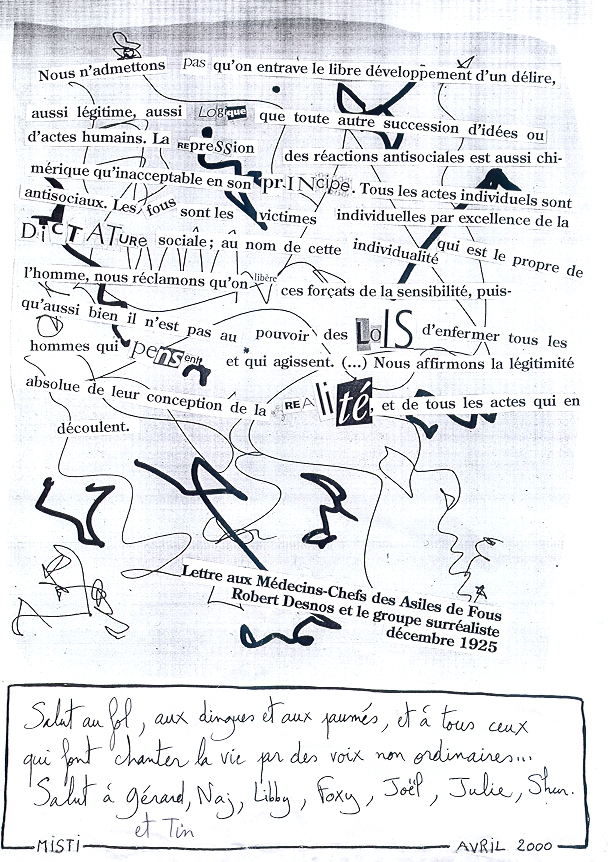 Nous n'admettons pas qu'on entrave le libre développement d'un délire,
aussi légitime, aussi LOGique que toute autre succession d'idées ou
d'actes humains. La REpreSSion des réactions antisociales est aussi chi-
mérique qu'inacceptable en son prINcipe. Tous les actes individuels sont
antisociaux. Les fous sont les victimes individuelles par excellence de la
DiCTATure sociale; au nom de cette individualité qui est le propre de
l'homme, nous réclamons qu'on libère ces forçats de la sensibilité, puis-
qu'aussi bien il n'est pas au pouvoir des LoIS d'enfermer tous les
hommes qui pensent et qui agissent. (...) Nous affirmons la légitimité
absolue de leur conception de la REAlité, et de tous les actes qui en
découlent.
Lettre aux Médecins-Chefs des Asiles de Fous
Robert Desnos et le groupe surréaliste
décembre 1925
Salut au fol, aux dingues et aux paumés, et à tous ceux
qui font chanter la vie par des voix non ordinaires...
Salut à Gérard, Naj, Libby, Foxy, Joël, Julie, Shun.
et Tin
MISTI AVRIL 2000